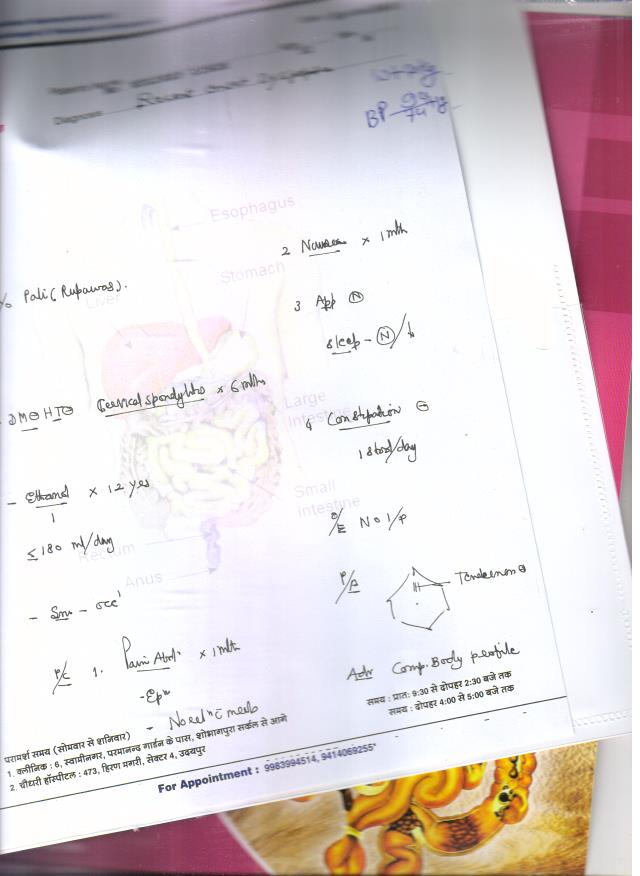 Diagnosis
BP
Esophagus
2 Nausea x 1 mth
% Pali (Rupawas).
Stomach
Liver
3 App Ⓝ
sleep - Ⓝ/
- DM⊖ HT⊖ Cervical spondylitis x 6 mths
Large
Intestine
4 Constipation ⊖
1 stool/day
- Ethanol x 12 yrs
≤ 180 ml/day
Small
intestine
O/E NO I/P
Rectum
Anus
P/A
Tenderness
- Sm - occ
P/C 1. Pain Abd x 1 mth
- Ep
- No rel c meals
Adv Comp. Body profile
समय : प्रात: 9:30 से दोपहर 2:30 बजे तक
समय : दोपहर 4:00 से 5:00 बजे तक
परामर्श समय (सोमवार से शनिवार)
1. क्लीनिक : 6, स्वामीनगर, परमानन्द गार्डन के पास, शोभागपुरा सर्कल से आगे
2. चौधरी हॉस्पीटल : 473, हिरण मगरी, सेक्टर 4, उदयपुर
For Appointment : 9983994514, 9414069255*